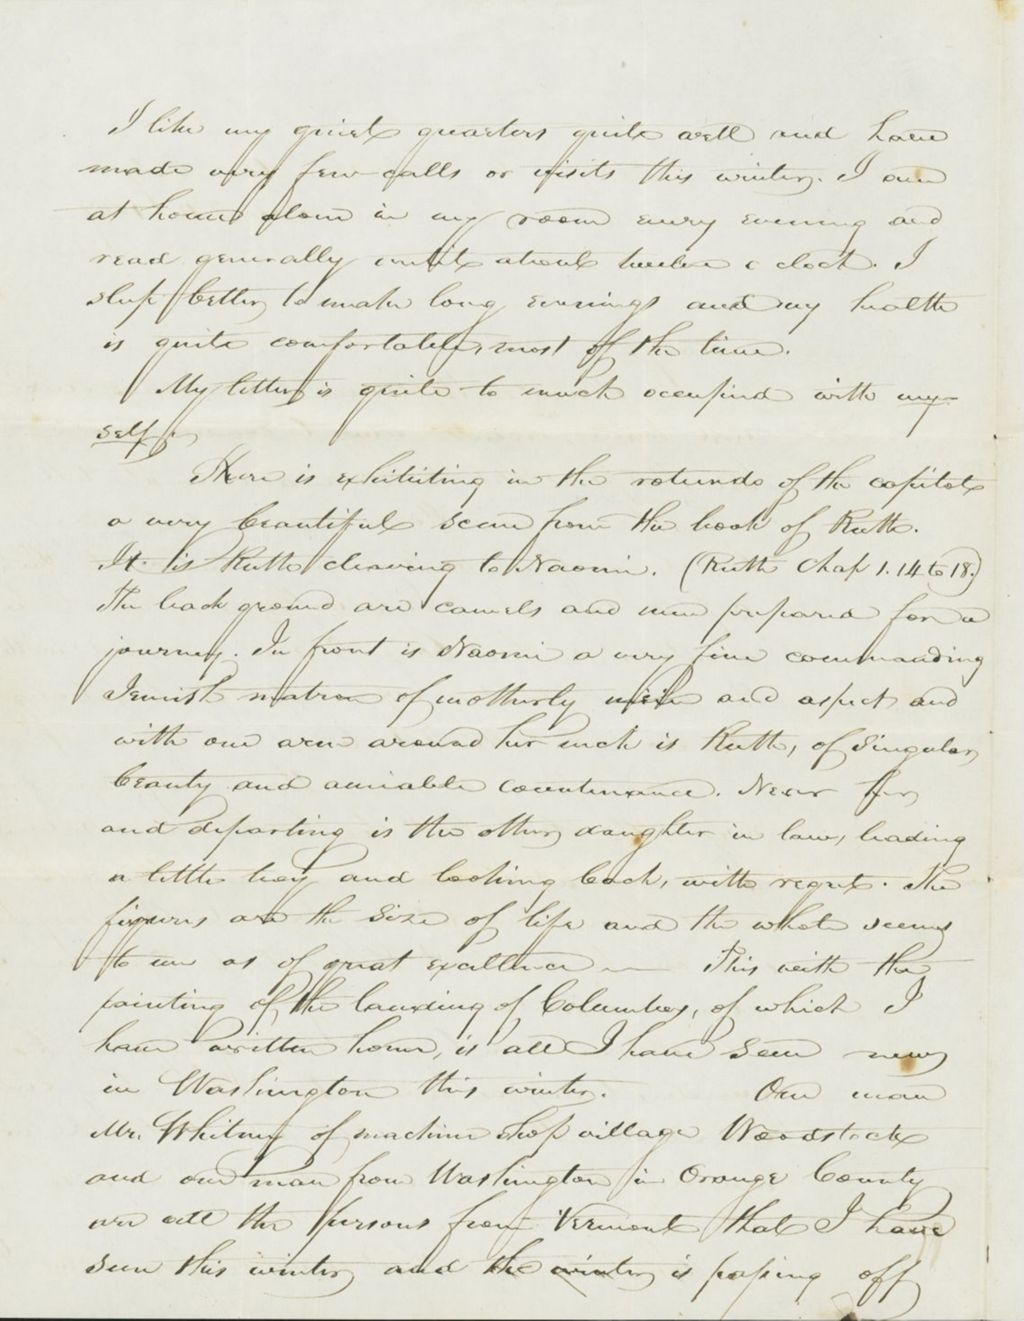 I like my quiet quarters quite well and have
made very few calls or visits this winter. I am
at home alone in my room every evening and
read generally until about twelve o clock. I
sleep better to make long evenings and my health
is quite comfortable most of the time.
My letter is quite to much occupied with my-
self.
There is exhibiting in the rotunda of the capitol
a very beautiful scene from the book of Ruth.
It is Ruth cleaving to Naomi. (Ruth Chap 1. 14 to 18.)
The back ground are camels and men prepared for a
journey. In front is Naomi a very fine commanding
Jewish matron of motherly mein and aspect and
with one arm around her neck is Ruth, of singular
beauty and amiable countenance. Near her
and departing is the other daughter in law, leading
a little boy and looking back, with regret. The
figures are the size of life and the whole seems
to me as of great excellence — This with the
painting of the landing of Columbus, of which I
have written home, is all I have seen new
in Washington this winter. One man
Mr. Whitney of machine shop village Woodstock
and one man from Washington in Orange County
are all the persons from Vermont that I have
seen this winter and the winter is passing off